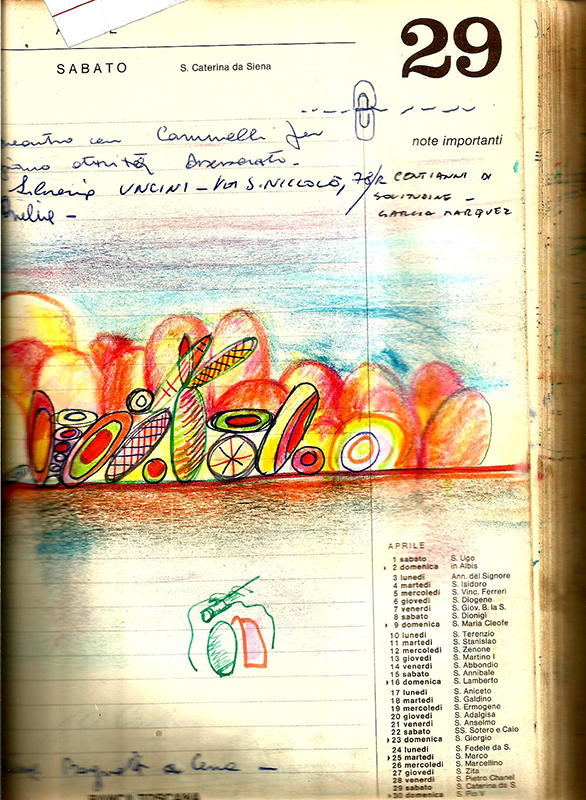 SABATO S. Caterina da Siena 29
note importanti
con Cammelli per
Assessorato -
UNCINI - VIA S. NICCOLÒ, 78/R CENT'ANNI DI
SOLITUDINE -
GARCIA MARQUEZ
APRILE
1 sabato S. Ugo
2 domenica in Albis
3 lunedì Ann. del Signore
4 martedì S. Isidoro
5 mercoledì S. Vinc. Ferreri
6 giovedì S. Diogene
7 venerdì S. Giov. B. la S.
8 sabato S. Dionigi
9 domenica S. Maria Cleofe
10 lunedì S. Terenzio
11 martedì S. Stanislao
12 mercoledì S. Zenone
13 giovedì S. Martino I
14 venerdì S. Abbondio
15 sabato S. Annibale
16 domenica S. Lamberto
17 lunedì S. Aniceto
18 martedì S. Galdino
19 mercoledì S. Ermogene
20 giovedì S. Adalgisa
21 venerdì S. Anselmo
22 sabato SS. Sotero e Caio
23 domenica S. Giorgio
24 lunedì S. Fedele da S.
25 martedì S. Marco
26 mercoledì S. Marcellino
27 giovedì S. Zita
28 venerdì S. Pietro Chanel
29 sabato S. Caterina da S.
30 domenica S. Pio V
a Cena -
BANCA TOSCANA